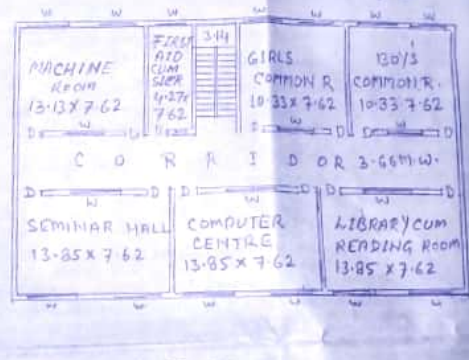 W W W W W W
MACHINE
ROOM
13.13 X 7.62
W
D
FIRST
AID
CUM
SICK
4.27x
7.62
3.14
GIRLS
COMMON R
10.33 X 7.62
W
D D
BOYS
COMMON R.
10.33 7.62
W
D D
CORRIDOR 3.66M.W.
D D D D D D
W W W
SEMINAR HALL
13.85 X 7.62
COMPUTER
CENTRE
13.85 X 7.62
LIBRARY CUM
READING ROOM
13.85 X 7.62
W W W W W W